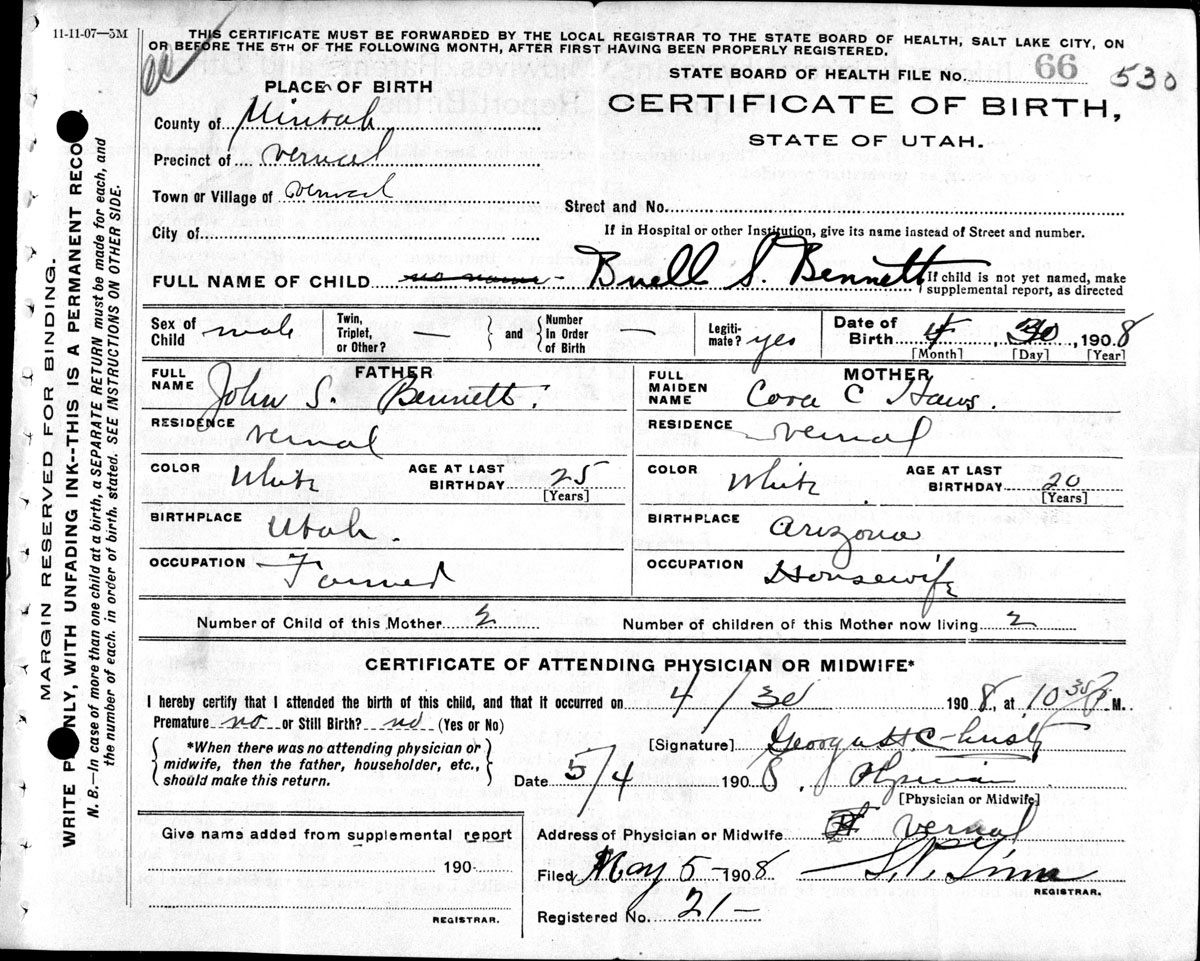 11-11-07—5M
THIS CERTIFICATE MUST BE FORWARDED BY THE LOCAL REGISTRAR TO THE STATE BOARD OF HEALTH, SALT LAKE CITY, ON
OR BEFORE THE 5TH OF THE FOLLOWING MONTH, AFTER FIRST HAVING BEEN PROPERLY REGISTERED.
STATE BOARD OF HEALTH FILE No. 66 530
PLACE OF BIRTH
CERTIFICATE OF BIRTH,
STATE OF UTAH.
County of Uintah
Precinct of Vernal
Town or Village of Vernal
Street and No.
City of
If in Hospital or other Institution, give its name instead of Street and number.
FULL NAME OF CHILD no name - Buell S. Bennett
If child is not yet named, make
supplemental report, as directed
Sex of Child male
Twin, Triplet, or Other? — and Number In Order of Birth —
Legitimate? yes
Date of Birth 4, 30, 1908
[Month] [Day] [Year]
FATHER
FULL NAME John S. Bennett.
MOTHER
FULL MAIDEN NAME Cora C Haws.
RESIDENCE Vernal
RESIDENCE Vernal
COLOR White AGE AT LAST BIRTHDAY 25 [Years]
COLOR White AGE AT LAST BIRTHDAY 20 [Years]
BIRTHPLACE Utah.
BIRTHPLACE Arizona
OCCUPATION Farmer
OCCUPATION Housewife
Number of Child of this Mother 2 Number of children of this Mother now living 2
CERTIFICATE OF ATTENDING PHYSICIAN OR MIDWIFE*
I hereby certify that I attended the birth of this child, and that it occurred on 4/30 1908, at 10 30 P M.
Premature no or Still Birth? no (Yes or No)
*When there was no attending physician or
midwife, then the father, householder, etc.,
should make this return.
[Signature] George H. Christy
Date 5/4 1908. Physician
[Physician or Midwife]
Give name added from supplemental report
190
REGISTRAR.
Address of Physician or Midwife Vernal
Filed May 5 - 1908
REGISTRAR.
Registered No. 21 —
MARGIN RESERVED FOR BINDING.
WRITE P NLY, WITH UNFADING INK--THIS IS A PERMANENT RECO .
N. B.—In case of more than one child at a birth, a SEPARATE RETURN must be made for each, and
the number of each, in order of birth, stated. SEE INSTRUCTIONS ON OTHER SIDE.